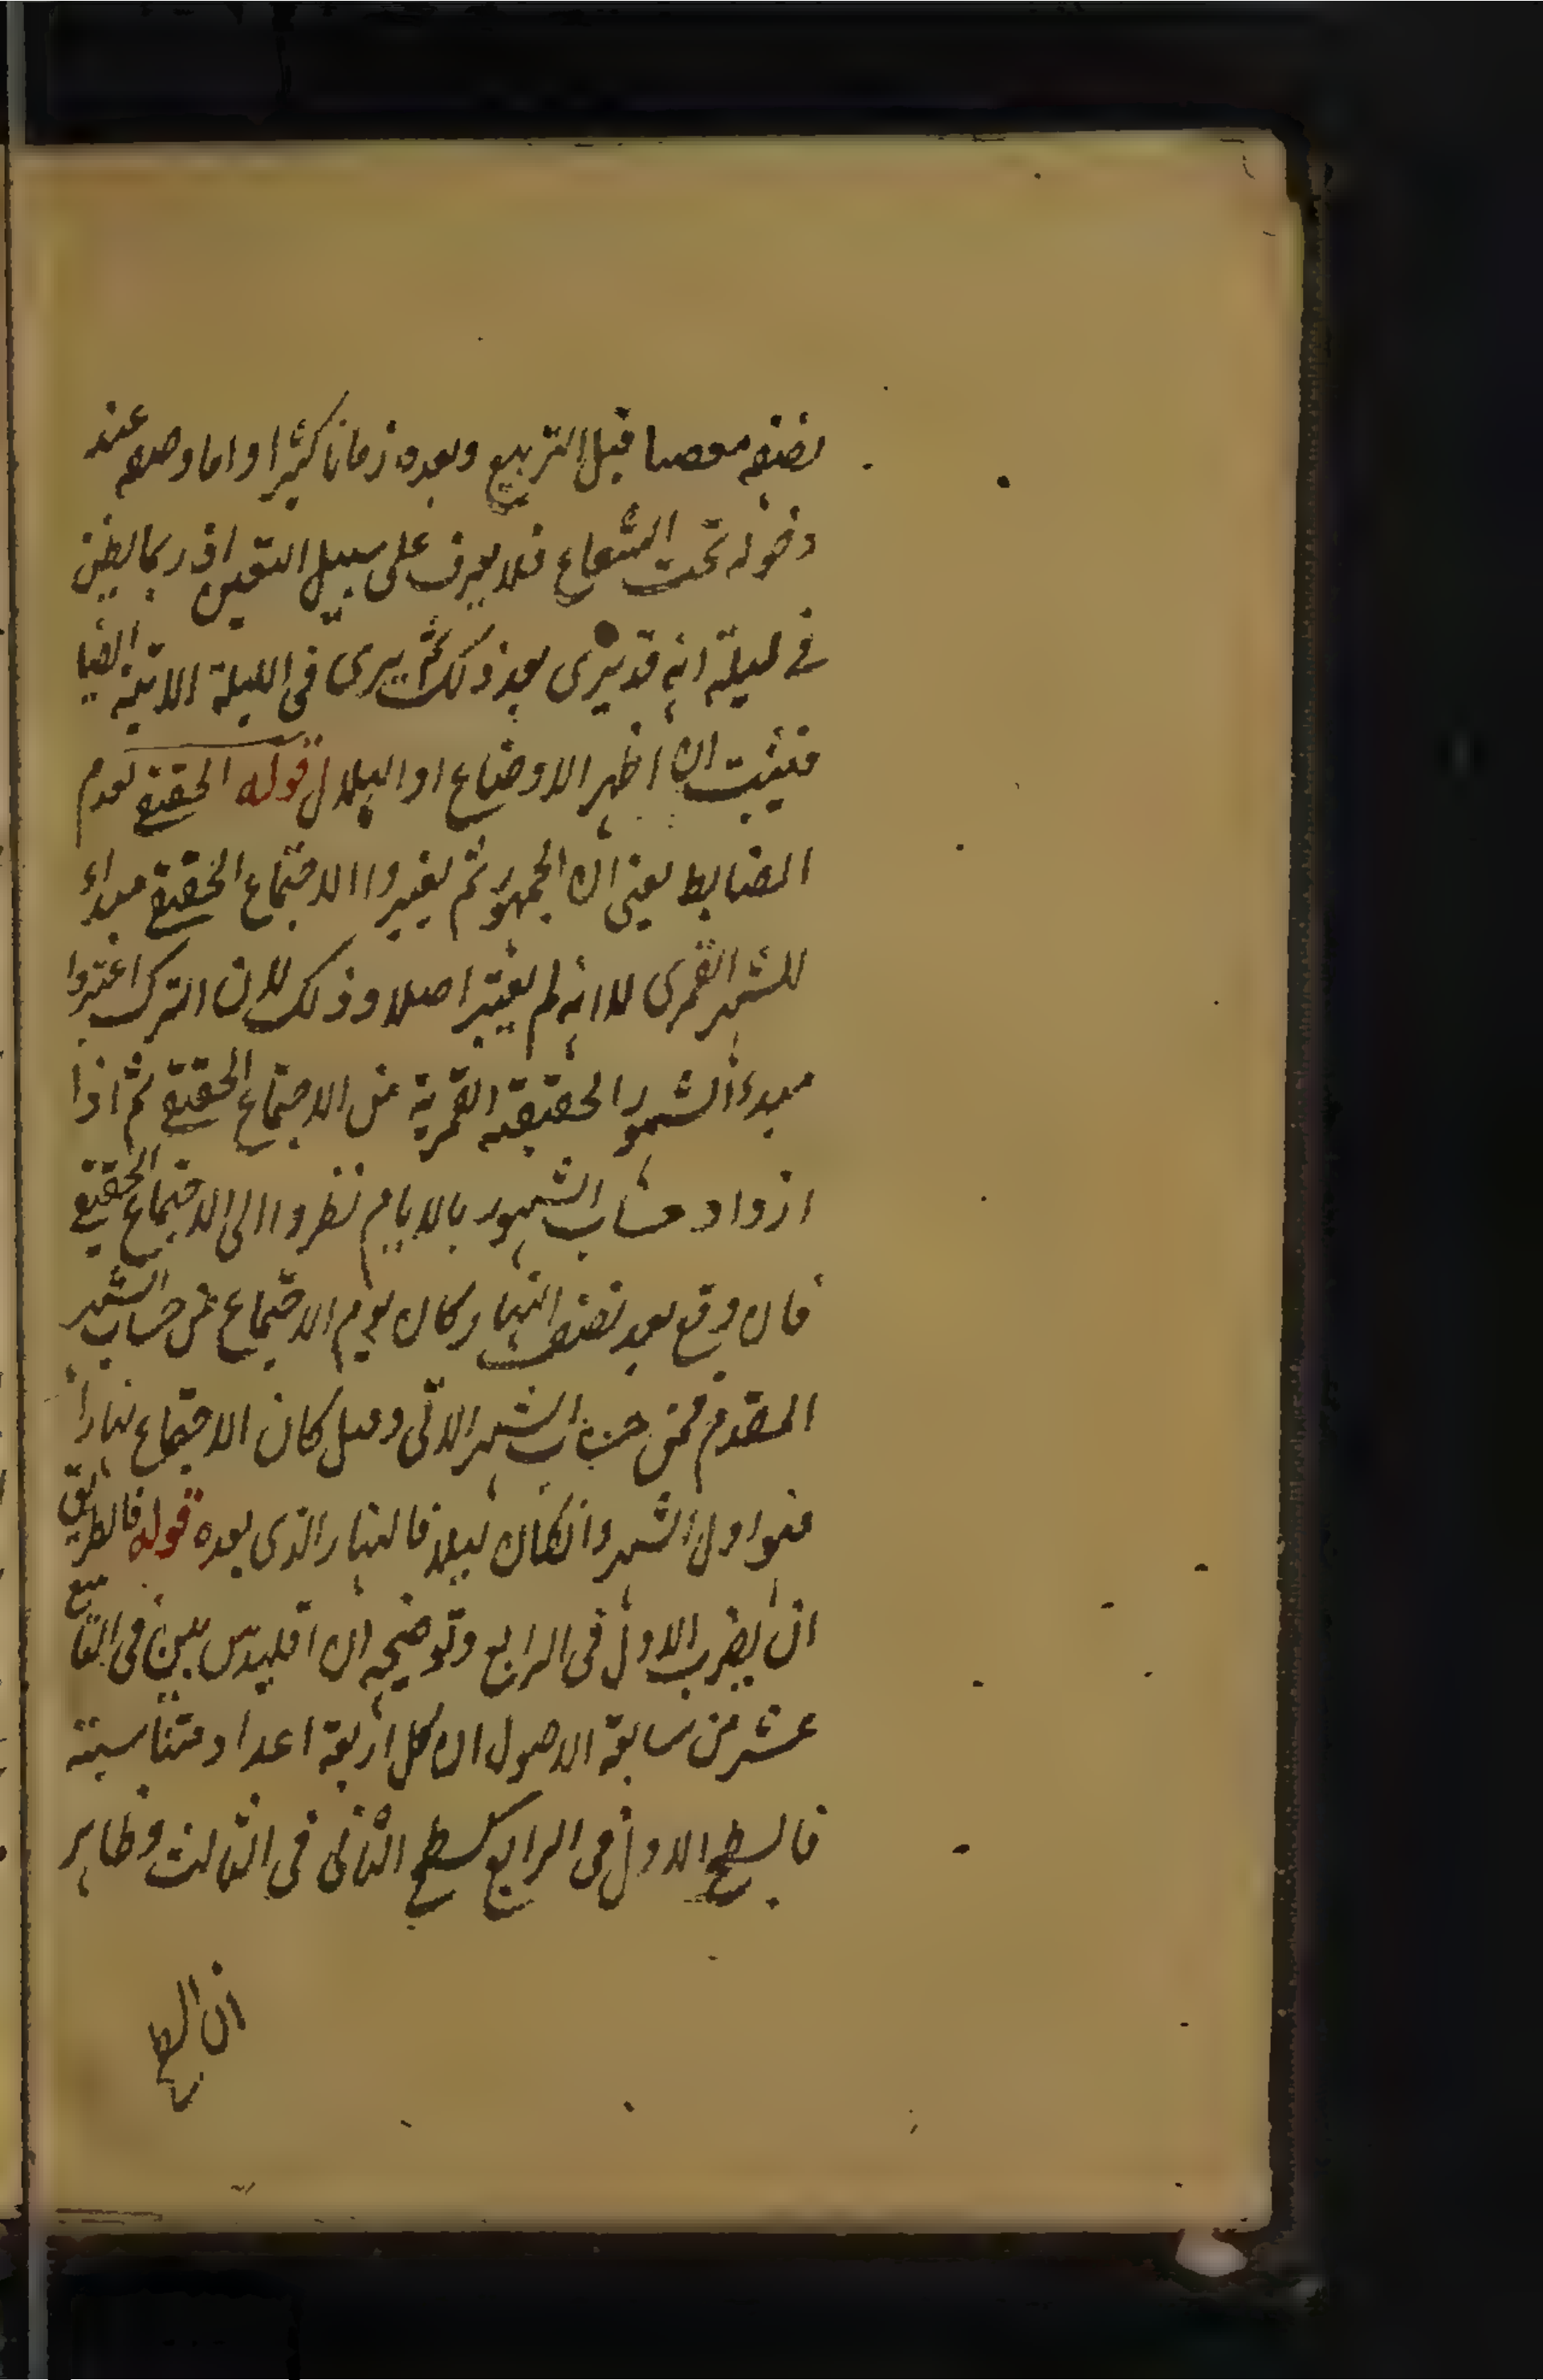 نصفه مضيئا قبل التربيع وبعده زمانا كثيرا واما وضعه عند
دخوله تحت الشعاع فلا يعرف على سبيل التعيين اذ ربما يظن
في ليلة انه قد يرى بعد ذلك ثم يرى في الليلة الاتية ايضا
فيثبت ان اظهر الاوضاع اوا الهلال قوله الحقيقي لعدم
الضابط يعني ان الجمهور لم يعتبروا الاجتماع الحقيقي مبداء
للشهر القمرى لا انه لم يعتبر اصلا وذلك لان الترك اعتبروا
مبدء الشهور الحقيقة القمرية من الاجتماع الحقيقي ثم اذا
ازداد حساب الشهور بالايام نظروا الى الاجتماع الحقيقي
فان وقع بعد نصف النهار كان يوم الاجتماع من حساب الشهر
المقدم فمن حساب الشهر الاتى وقيل كان الاجتماع نهارا
فهو اول الشهر وان كان ليلا فالنهار الذى بعده قوله فالطريق
ان يضرب الاول فى الرابع وتوضيحه ان اقليدس بين فى التاسع
عشر من سابعة الاصول ان كل اربعة اعداد متناسبة
فالسطح الاول فى الرابع كسطح الثانى فى الثالث وظاهر
ان السطح